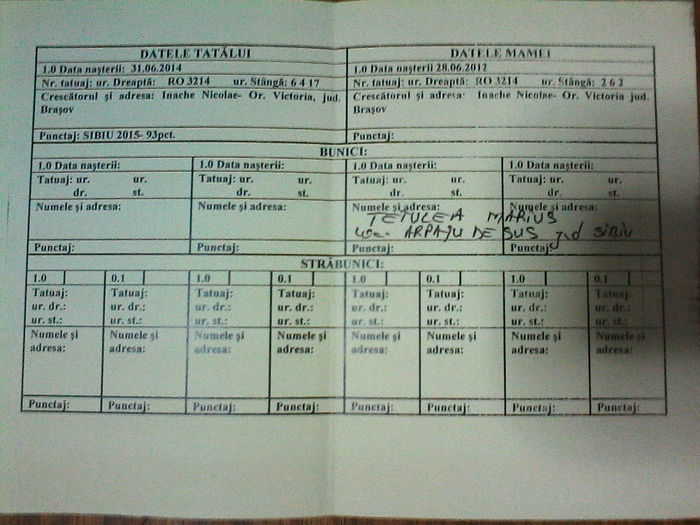 DATELE TATĂLUI
DATELE MAMEI
1.0 Data nașterii: 31.06.2014
1.0 Data nașterii 28.06.2012
Nr. tatuaj: ur. Dreaptă: RO 3214 ur. Stângă: 6 4 17
Nr. tatuaj: ur. Dreaptă: RO 3214 ur. Stângă: 2 6 2
Crescătorul și adresa: Inache Nicolae- Or. Victoria, jud.
Brașov
Crescătorul și adresa: Inache Nicolae- Or. Victoria jud.
Brașov
Punctaj: SIBIU 2015- 93pct.
Punctaj:
BUNICI:
1.0 Data nașterii:
1.0 Data nașterii:
1.0 Data nașterii:
1.0 Data nașterii:
Tatuaj: ur. ur.
dr. st.
Tatuaj: ur. ur.
dr. st.
Tatuaj: ur. ur.
dr. st.
Tatuaj: ur. ur.
dr. st.
Numele și adresa:
Numele și adresa:
Numele și adresa:
Numele și adresa:
TETULEA MARIUS
ARPAȘU DE SUS jud SIBIU
Punctaj:
Punctaj:
Punctaj:
Punctaj:
STRĂBUNICI:
1.0 0.1 1.0 0.1 1.0 0.1 1.0 0.1
Tatuaj: Tatuaj: Tatuaj: Tatuaj: Tatuaj: Tatuaj: Tatuaj: Tatuaj:
ur. dr.: ur. dr.: ur. dr.: ur. dr.: ur. dr.: ur. dr.: ur. dr.: ur. dr.:
ur. st.: ur. st.: ur. st.: ur. st.: ur. st.: ur. st.: ur. st.: ur. st.:
Numele și Numele și Numele și Numele și Numele și Numele și Numele și Numele și
adresa: adresa: adresa: adresa: adresa: adresa: adresa: adresa:
Punctaj: Punctaj: Punctaj: Punctaj: Punctaj: Punctaj: Punctaj: Punctaj: